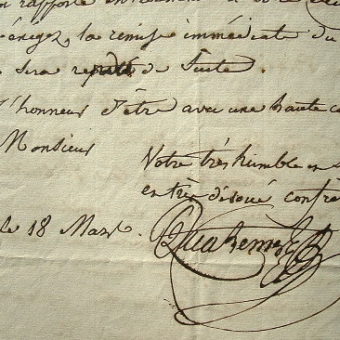 rapporte
exigez la remise immédiate du
sera de suite.
l'honneur d'être avec une haute
Monsieur
Votre très humble
et très dévoué confrè
le 18 Mars.